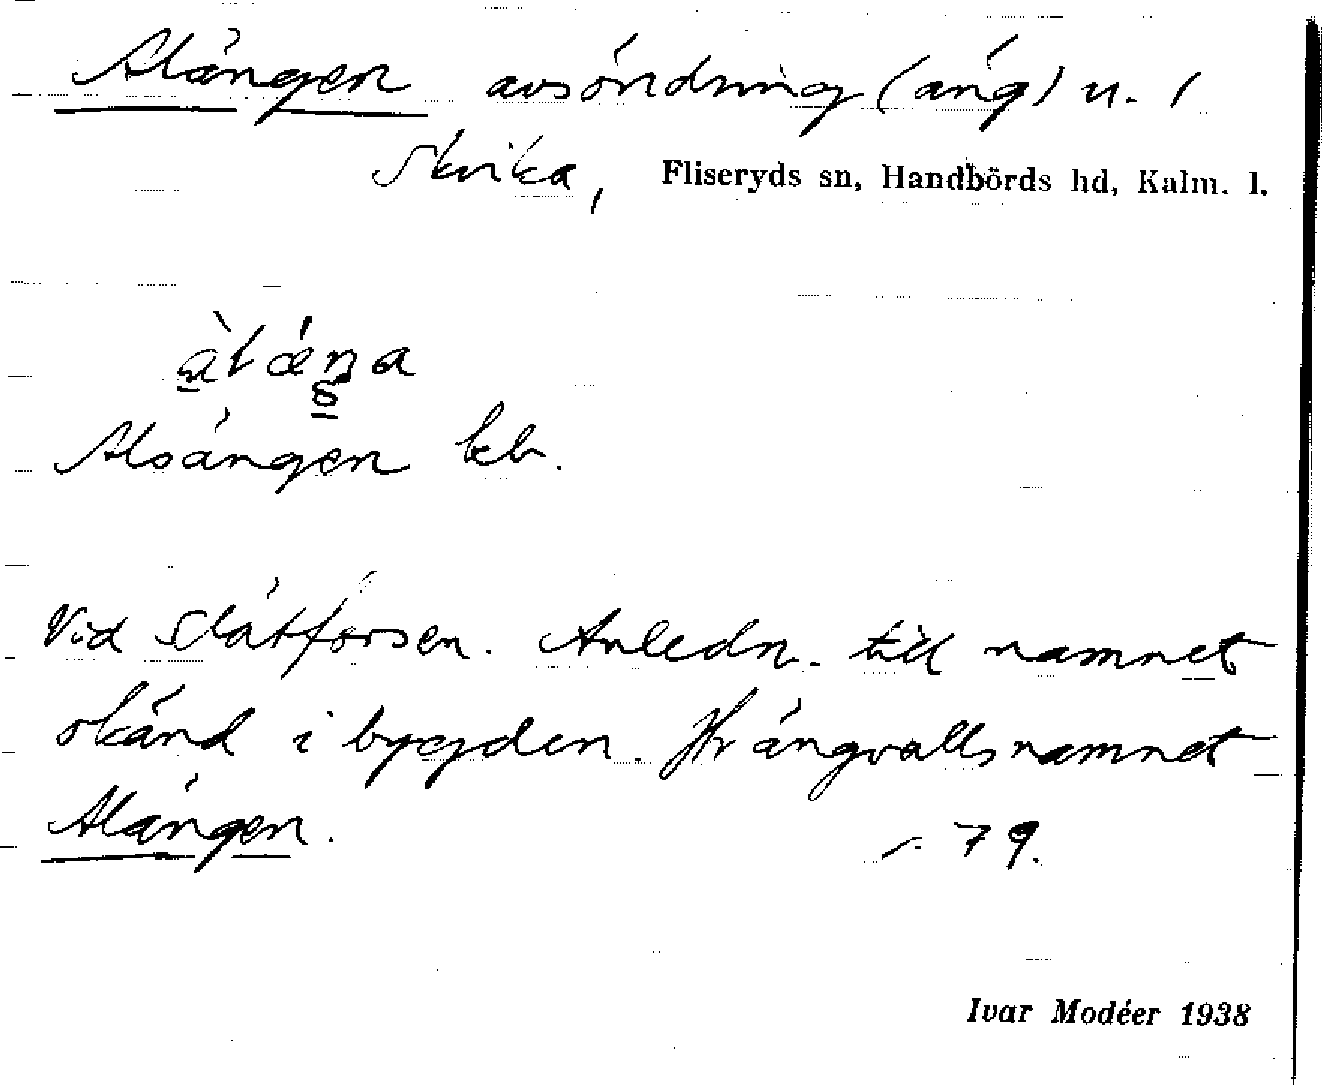 Alängen avsöndring (äng) u. 1
Skvika, Fliseryds sn, Handbörds hd, Kalm. l.
Alsängen kb.
Vid Slätforsen. Anledn. till namnet
okänd i bygden. Jfr ängvallsnamnet
Alängen. s. 79.
Ivar Modéer 1938